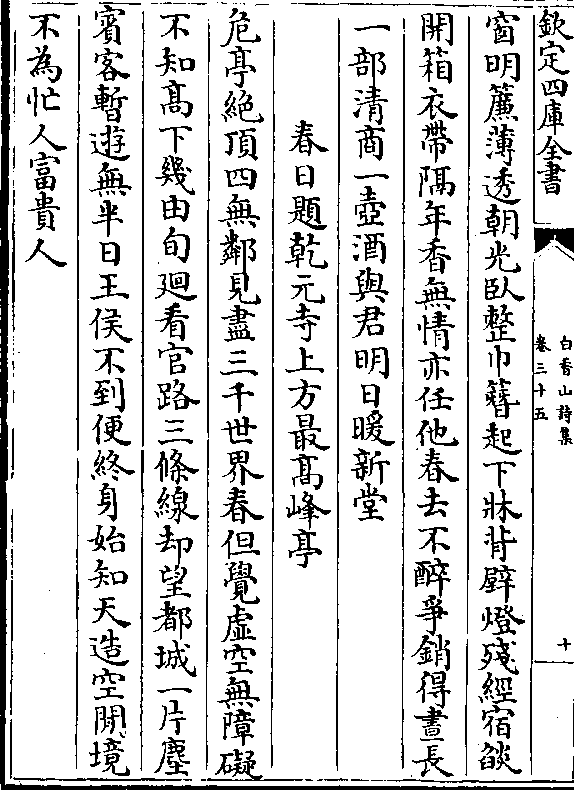 欽定四庫全書
白香山詩集
卷三十五
十
窗明簾薄透朝光臥整巾簪起下牀背壁燈殘經宿燄
開箱衣帶隔年香無情亦任他春去不醉爭銷得晝長
一部清商一壺酒與君明日暖新堂
春日題乾元寺上方最髙峰亭
危亭絶頂四無鄰見盡三千世界春但覺虛空無障礙
不知髙下幾由旬迴看官路三條線却望都城一片塵
賓客暫遊無半日王侯不到便終身始知天造空閑境
不為忙人富貴人